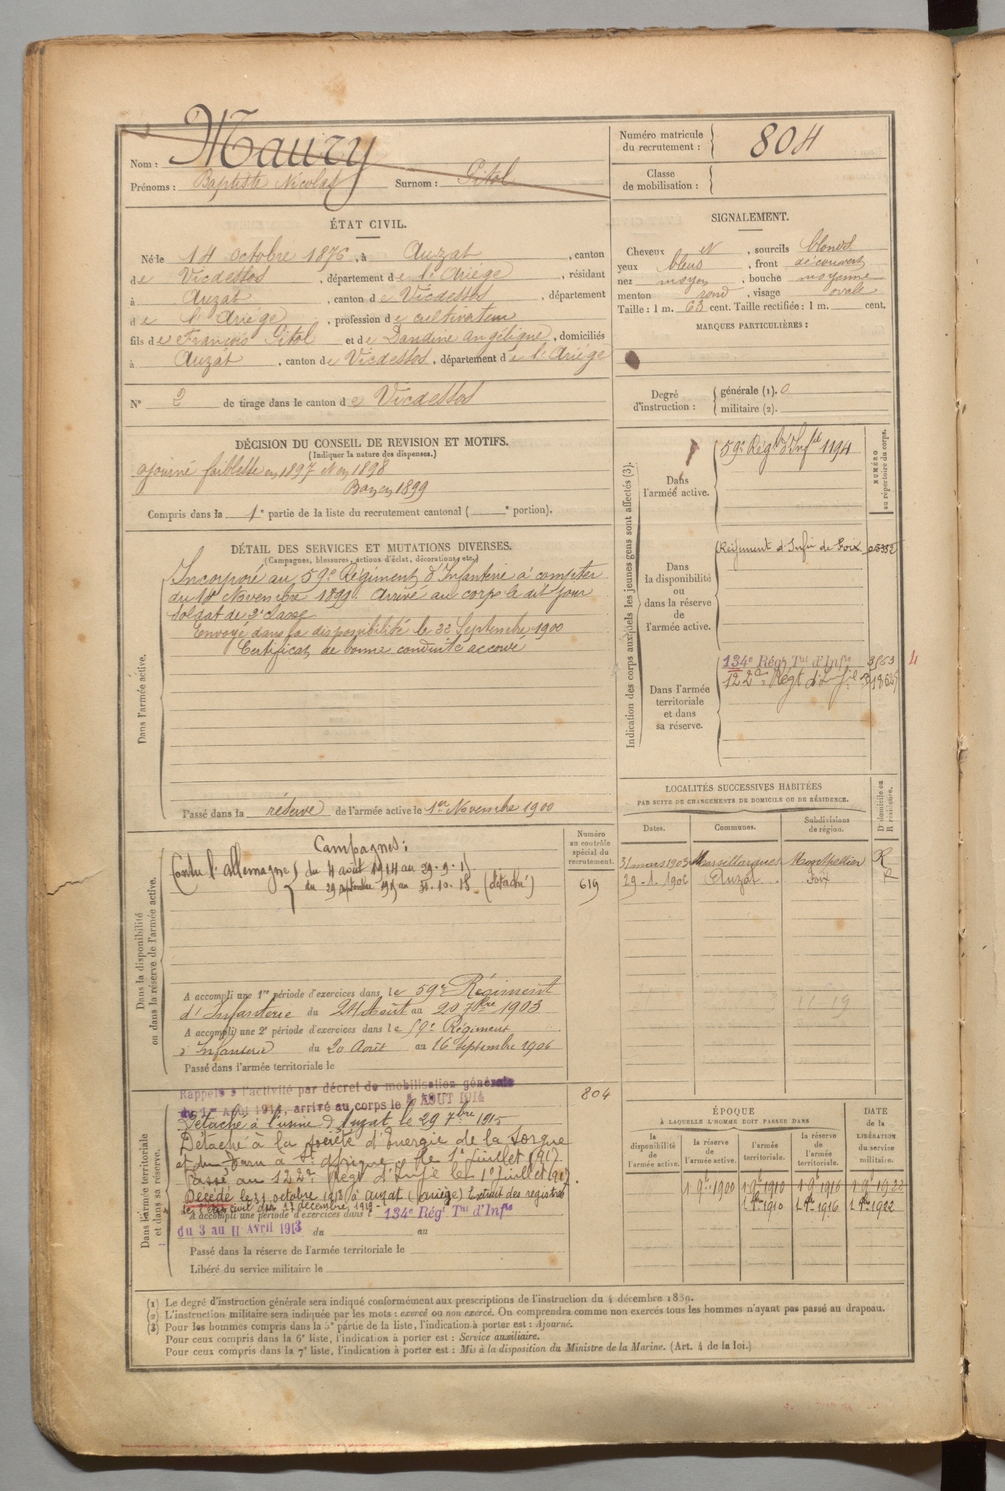 Nom : Maury
Prénoms : Baptiste Nicolas Surnom : Pitol
Numéro matricule du recrutement : 804
Classe de mobilisation :
ÉTAT CIVIL.
Né le 14 octobre 1876, à Auzat, canton
de Vicdessos, département de l'Ariège, résidant
à Auzat, canton de Vicdessos, département
de l'Ariège, profession de cultivateur
fils de François Pitol et de Dandine Angélique, domiciliés
à Auzat, canton de Vicdessos, département de l'Ariège
N° 2 de tirage dans le canton de Vicdessos
SIGNALEMENT.
Cheveux et, sourcils blonds
yeux bleus, front découvert
nez moyen, bouche moyenne
menton rond, visage ovale
Taille : 1 m. 63 cent. Taille rectifiée : 1 m. cent.
MARQUES PARTICULIÈRES :
Degré d'instruction : générale (1). 0
militaire (2).
DÉCISION DU CONSEIL DE REVISION ET MOTIFS.
(Indiquer la nature des dispenses.)
ajourné faiblesse en 1897 et en 1898
Bon en 1899
Compris dans la 1e partie de la liste du recrutement cantonal ( e portion).
DÉTAIL DES SERVICES ET MUTATIONS DIVERSES.
(Campagnes, blessures, actions d'éclat, décorations, etc.)
Dans l'armée active.
Incorporé au 59e Régiment d'Infanterie à compter
du Novembre 1899. Arrivé au corps le dit jour
soldat de 2e classe
Envoyé dans la disponibilité le 22 Septembre 1900
Certificat de bonne conduite accordé
Passé dans la réserve de l'armée active le 1er Novembre 1900
Indication des corps auxquels les jeunes gens sont affectés (3).
NUMÉRO au répertoire du corps.
Dans l'armée active.
59e Régt d'Infie 1194
Dans la disponibilité ou dans la réserve de l'armée active.
Régiment d'Infie de Foix
Dans l'armée territoriale et dans sa réserve.
134e Régt Tal d'Infie 3563
122e Régt d'Infie
4
LOCALITÉS SUCCESSIVES HABITÉES
PAR SUITE DE CHANGEMENTS DE DOMICILE OU DE RÉSIDENCE.
Dates. Communes. Subdivisions de région. Domicile ou Résidence.
31 mars 1903 Marsillargues Montpellier R
29-1. 1906 Auzat Foix
11 19
Dans la disponibilité ou dans la réserve de l'armée active.
Numéro au contrôle spécial du recrutement.
619
Campagnes :
Contre l'allemagne du 4 août 1914 au 29-9-15
du 29 septembre 1915 au 31-10-18 (détaché)
A accompli une 1re période d'exercices dans le 59e Régiment
d'Infanterie du 24 Août au 20 7bre 1903
A accompli une 2e période d'exercices dans le 59e Régiment
d'Infanterie du 20 Août au 16 Septembre 1906
Passé dans l'armée territoriale le
Dans l'armée territoriale et dans sa réserve.
804
Rappelé à l'activité par décret de mobilisation générale
du 1er Août 1914, arrivé au corps le 4 AOUT 1914
Détaché à l'usine d'Auzat le 29 7bre 1915
Détaché à la Société d'Energie de la Sorgue
et du Tarn à St Afrique le 1e juillet 1917
Passé au 122e Régt d'Infie le 1e juillet 1917.
Décédé le 31 octobre 1918 à auzat (ariège) Extrait des registres
de l'état civil du 17 décembre 1919
A accompli une période d'exercices dans le 134e Régt Tal d'Infie
du 3 au 11 Avril 1913 du au
Passé dans la réserve de l'armée territoriale le
Libéré du service militaire le
ÉPOQUE
À LAQUELLE L'HOMME DOIT PASSER DANS
la disponibilité de l'armée active. la réserve de l'armée active. l'armée territoriale. la réserve de l'armée territoriale.
DATE de la LIBÉRATION du service militaire.
1 9e 1900 1 9e 1910 1 9e 1916 1 9e 1922
1 8bre 1910 1 8bre 1916 1 8bre 1922
(1) Le degré d'instruction générale sera indiqué conformément aux prescriptions de l'instruction du 4 décembre 1889.
(2) L'instruction militaire sera indiquée par les mots : exercé ou non exercé. On comprendra comme non exercés tous les hommes n'ayant pas passé au drapeau.
(3) Pour les hommes compris dans la 5e partie de la liste, l'indication à porter est : Ajourné.
Pour ceux compris dans la 6e liste, l'indication à porter est : Service auxiliaire.
Pour ceux compris dans la 7e liste, l'indication à porter est : Mis à la disposition du Ministre de la Marine. (Art. 4 de la loi.)